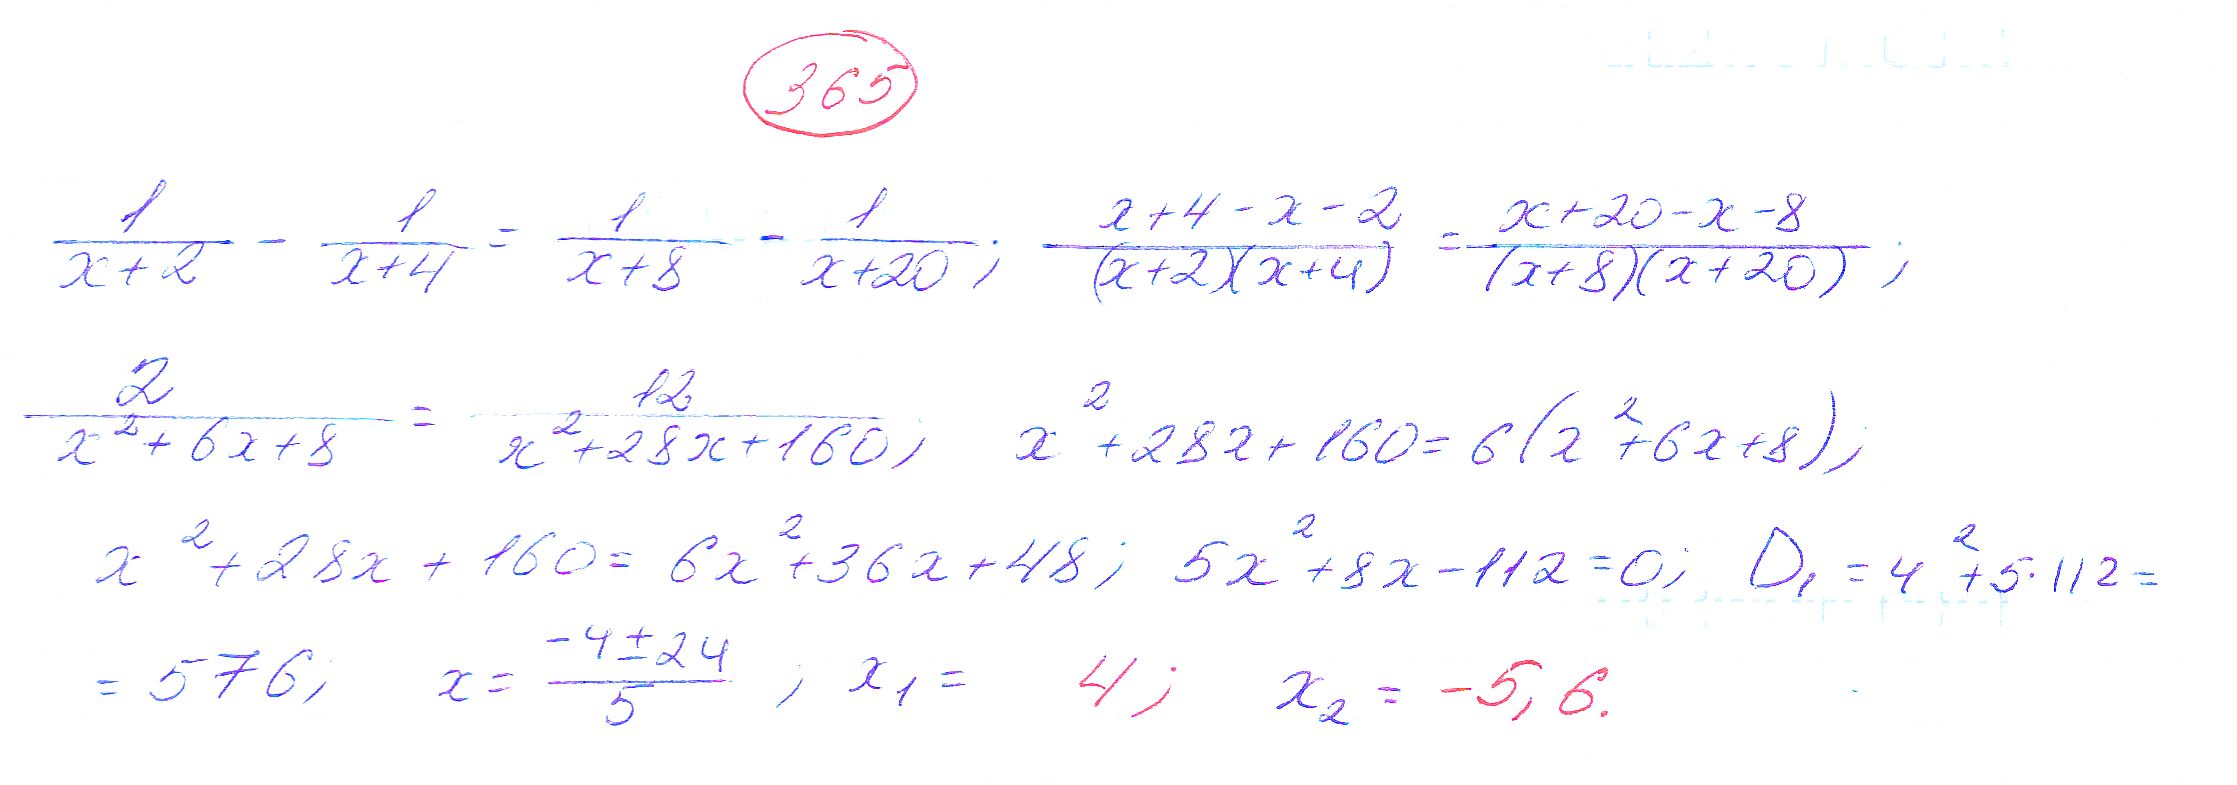 365
1/(x+2) - 1/(x+4) = 1/(x+8) - 1/(x+20); (x+4-x-2)/((x+2)(x+4)) = (x+20-x-8)/((x+8)(x+20));
2/(x²+6x+8) = 12/(x²+28x+160); x²+28x+160=6(x²+6x+8);
x²+28x+160=6x²+36x+48; 5x²+8x-112=0; D₁=4²+5·112=
=576; x=(-4±24)/5; x₁= 4; x₂=-5,6.